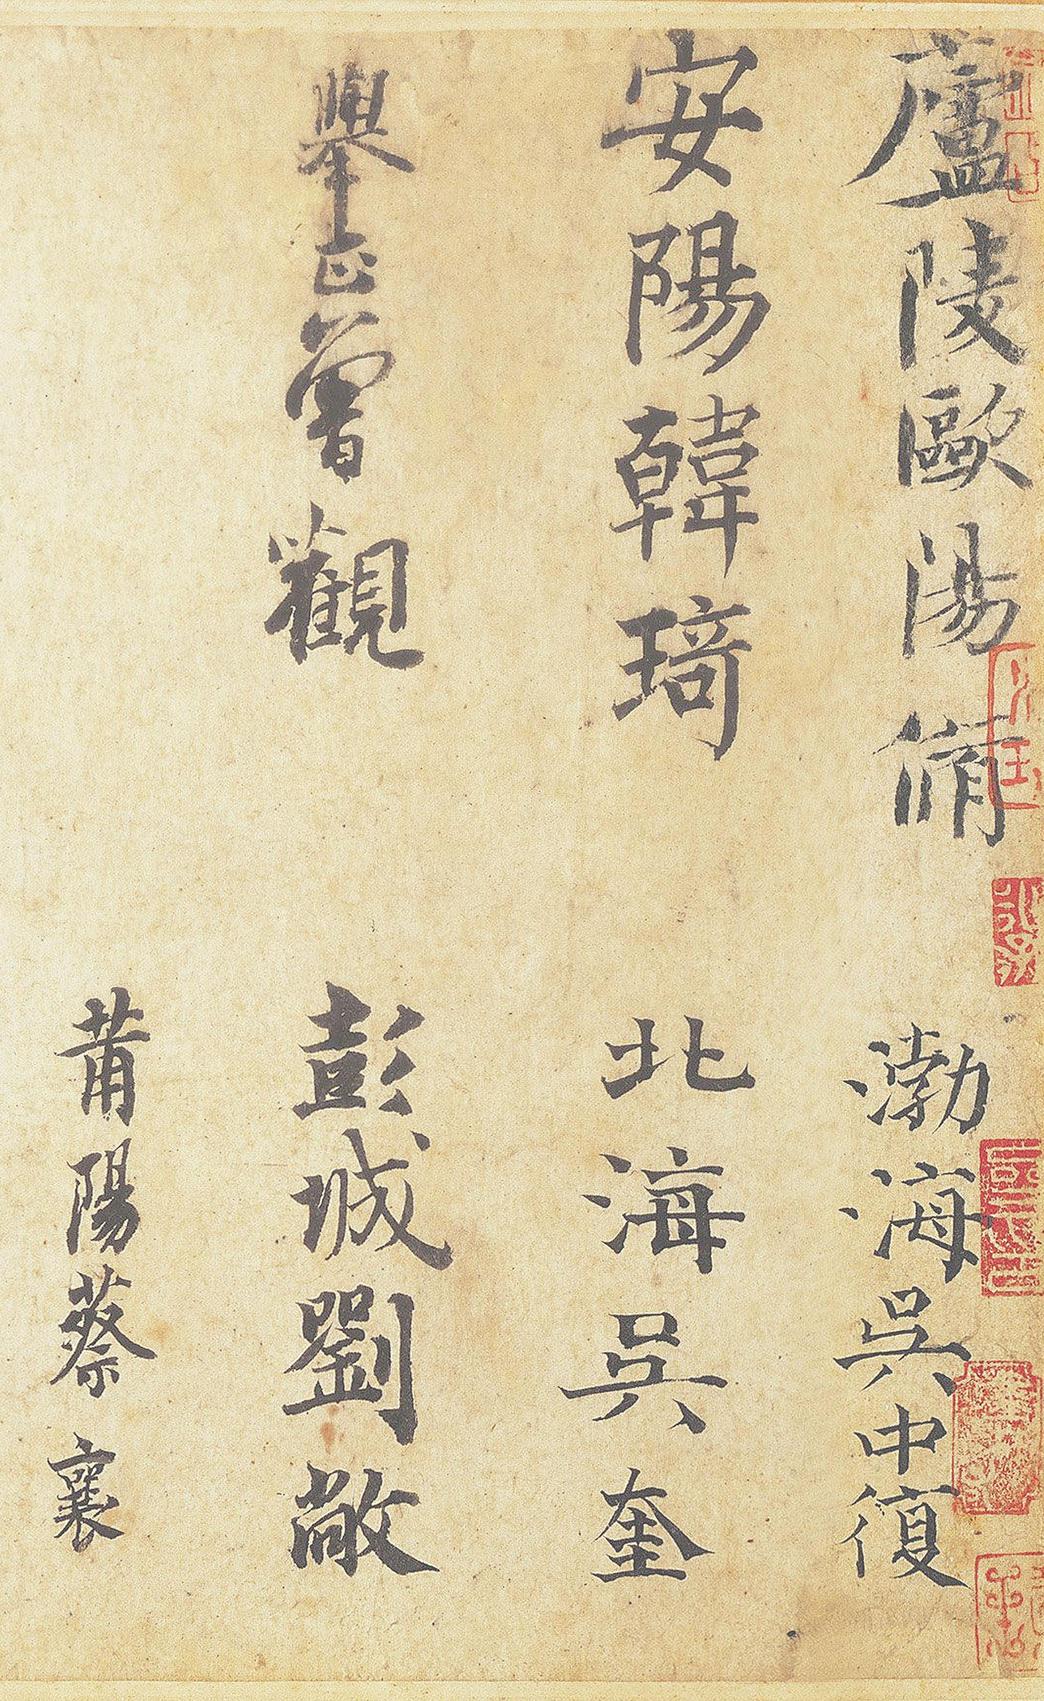 廬陵歐陽脩
渤海吳中復
安陽韓琦
北海吳奎
舉正曾觀
彭城劉敞
莆陽蔡襄